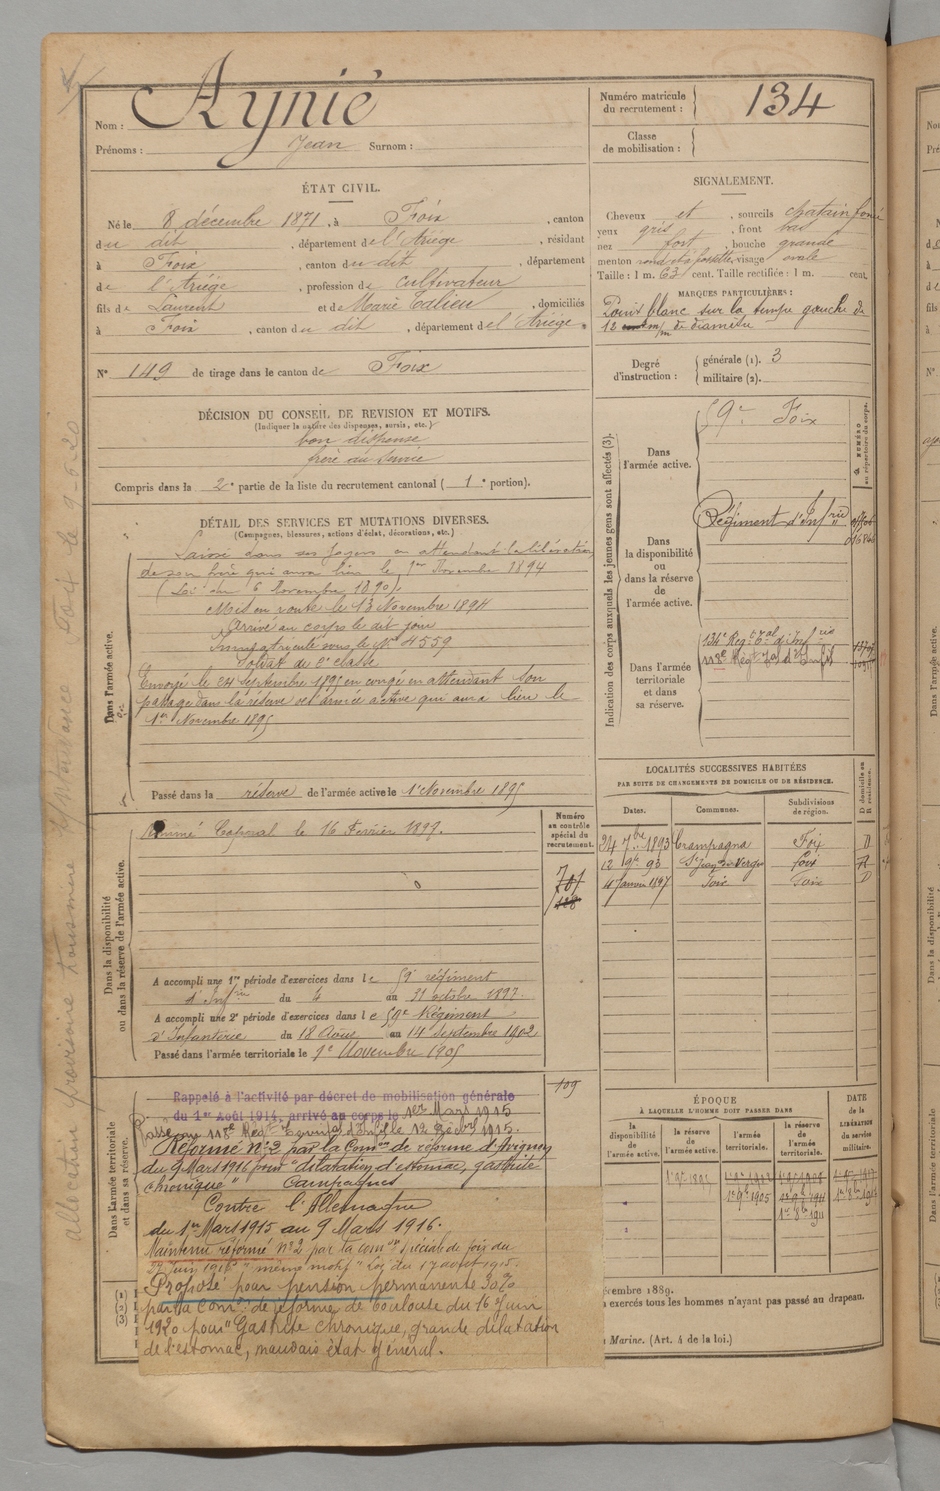 Nom : Aynié
Prénoms : Jean Surnom :
Numéro matricule du recrutement : 134
Classe de mobilisation :
ÉTAT CIVIL.
Né le 8 décembre 1871, à Foix, canton
du dit, département de l'Ariège, résidant
à Foix, canton du dit, département
de l'Ariège, profession de cultivateur
fils de Laurent et de Marie Calieu, domiciliés
à Foix, canton du dit, département de l'Ariège.
N° 149 de tirage dans le canton de Foix
DÉCISION DU CONSEIL DE REVISION ET MOTIFS.
(Indiquer la nature des dispenses, sursis, etc.)
bon dispense
frère au service
Compris dans la 2e partie de la liste du recrutement cantonal (1e portion).
SIGNALEMENT.
Cheveux et, sourcils chatain foncé
yeux gris, front bas
nez fort, bouche grande
menton rond et à fossette, visage ovale
Taille : 1 m. 63 cent. Taille rectifiée : 1 m. cent.
MARQUES PARTICULIÈRES :
Point blanc sur la tempe gauche de
12 m/m de diamètre
Degré d'instruction : générale (1). 3
militaire (2).
DÉTAIL DES SERVICES ET MUTATIONS DIVERSES.
(Campagnes, blessures, actions d'éclat, décorations, etc.)
Dans l'armée active.
Laissé dans ses foyers en attendant la libération
de son frère qui aura lieu le 1er Novembre 1894
(Loi du 6 novembre 1890).
Mis en route le 13 Novembre 1894
Arrivé au corps le dit jour
Immatriculé sous le N° 4559
Soldat de 2e classe
Envoyé le 24 Septembre 1895 en congé en attendant son
passage dans la réserve de l'armée active qui aura lieu le
1er Novembre 1895
Passé dans la réserve de l'armée active le 1er Novembre 1895
Dans la disponibilité ou dans la réserve de l'armée active.
Nommé Caporal le 16 Février 1897.
Numéro au contrôle spécial du recrutement.
A accompli une 1re période d'exercices dans le 59e régiment
d'Infrie du 4 au 31 octobre 1897.
A accompli une 2e période d'exercices dans le 59e Régiment
d'Infanterie du 18 Août au 14 Septembre 1902
Passé dans l'armée territoriale le 1er Novembre 1905
109
Dans l'armée territoriale et dans sa réserve.
Rappelé à l'activité par décret de mobilisation générale
du 1er Août 1914, arrivé au corps le 1er Mars 1915
Passé au 118e Régt Territal d'Inf le 12 Décbre 1915.
Réformé N°2 par la Comon de réforme d'Avignon
du 9 Mars 1916 pour "dilatation d'estomac, gastrite
chronique" Campagnes
Contre l'Allemagne
du 1er Mars 1915 au 9 Mars 1916.
Maintenu réformé N°2 par la comon spéciale de foix du
"même motif" Loi du 17 août 1915.
Proposé pour pension permanente 30%
par la Comon de réforme de Toulouse du 16 Juin
1920 pour "Gastrite chronique, grande dilatation
de l'estomac, mauvais état général.
Indication des corps auxquels les jeunes gens sont affectés (3).
NUMÉRO au répertoire du corps.
Dans l'armée active.
59e Foix
Dans la disponibilité ou dans la réserve de l'armée active.
Régiment d'Infrie
Dans l'armée territoriale et dans sa réserve.
134e Régt Tal d'Infrie
118e Régt Tal d'Infie
LOCALITÉS SUCCESSIVES HABITÉES
PAR SUITE DE CHANGEMENTS DE DOMICILE OU DE RÉSIDENCE.
Dates. Communes. Subdivisions de région. D domicile ou R résidence.
24 7bre 1893 Crampagna Foix D
12 9bre 95 St Jean de Verges foix R
4 Janvier 1897 Foix Foix D
ÉPOQUE
À LAQUELLE L'HOMME DOIT PASSER DANS
la disponibilité de l'armée active. la réserve de l'armée active. l'armée territoriale. la réserve de l'armée territoriale.
DATE de la LIBÉRATION du service militaire.
1er 9bre 1905
écembre 1889.
exercés tous les hommes n'ayant pas passé au drapeau.
Marine. (Art. 4 de la loi.)